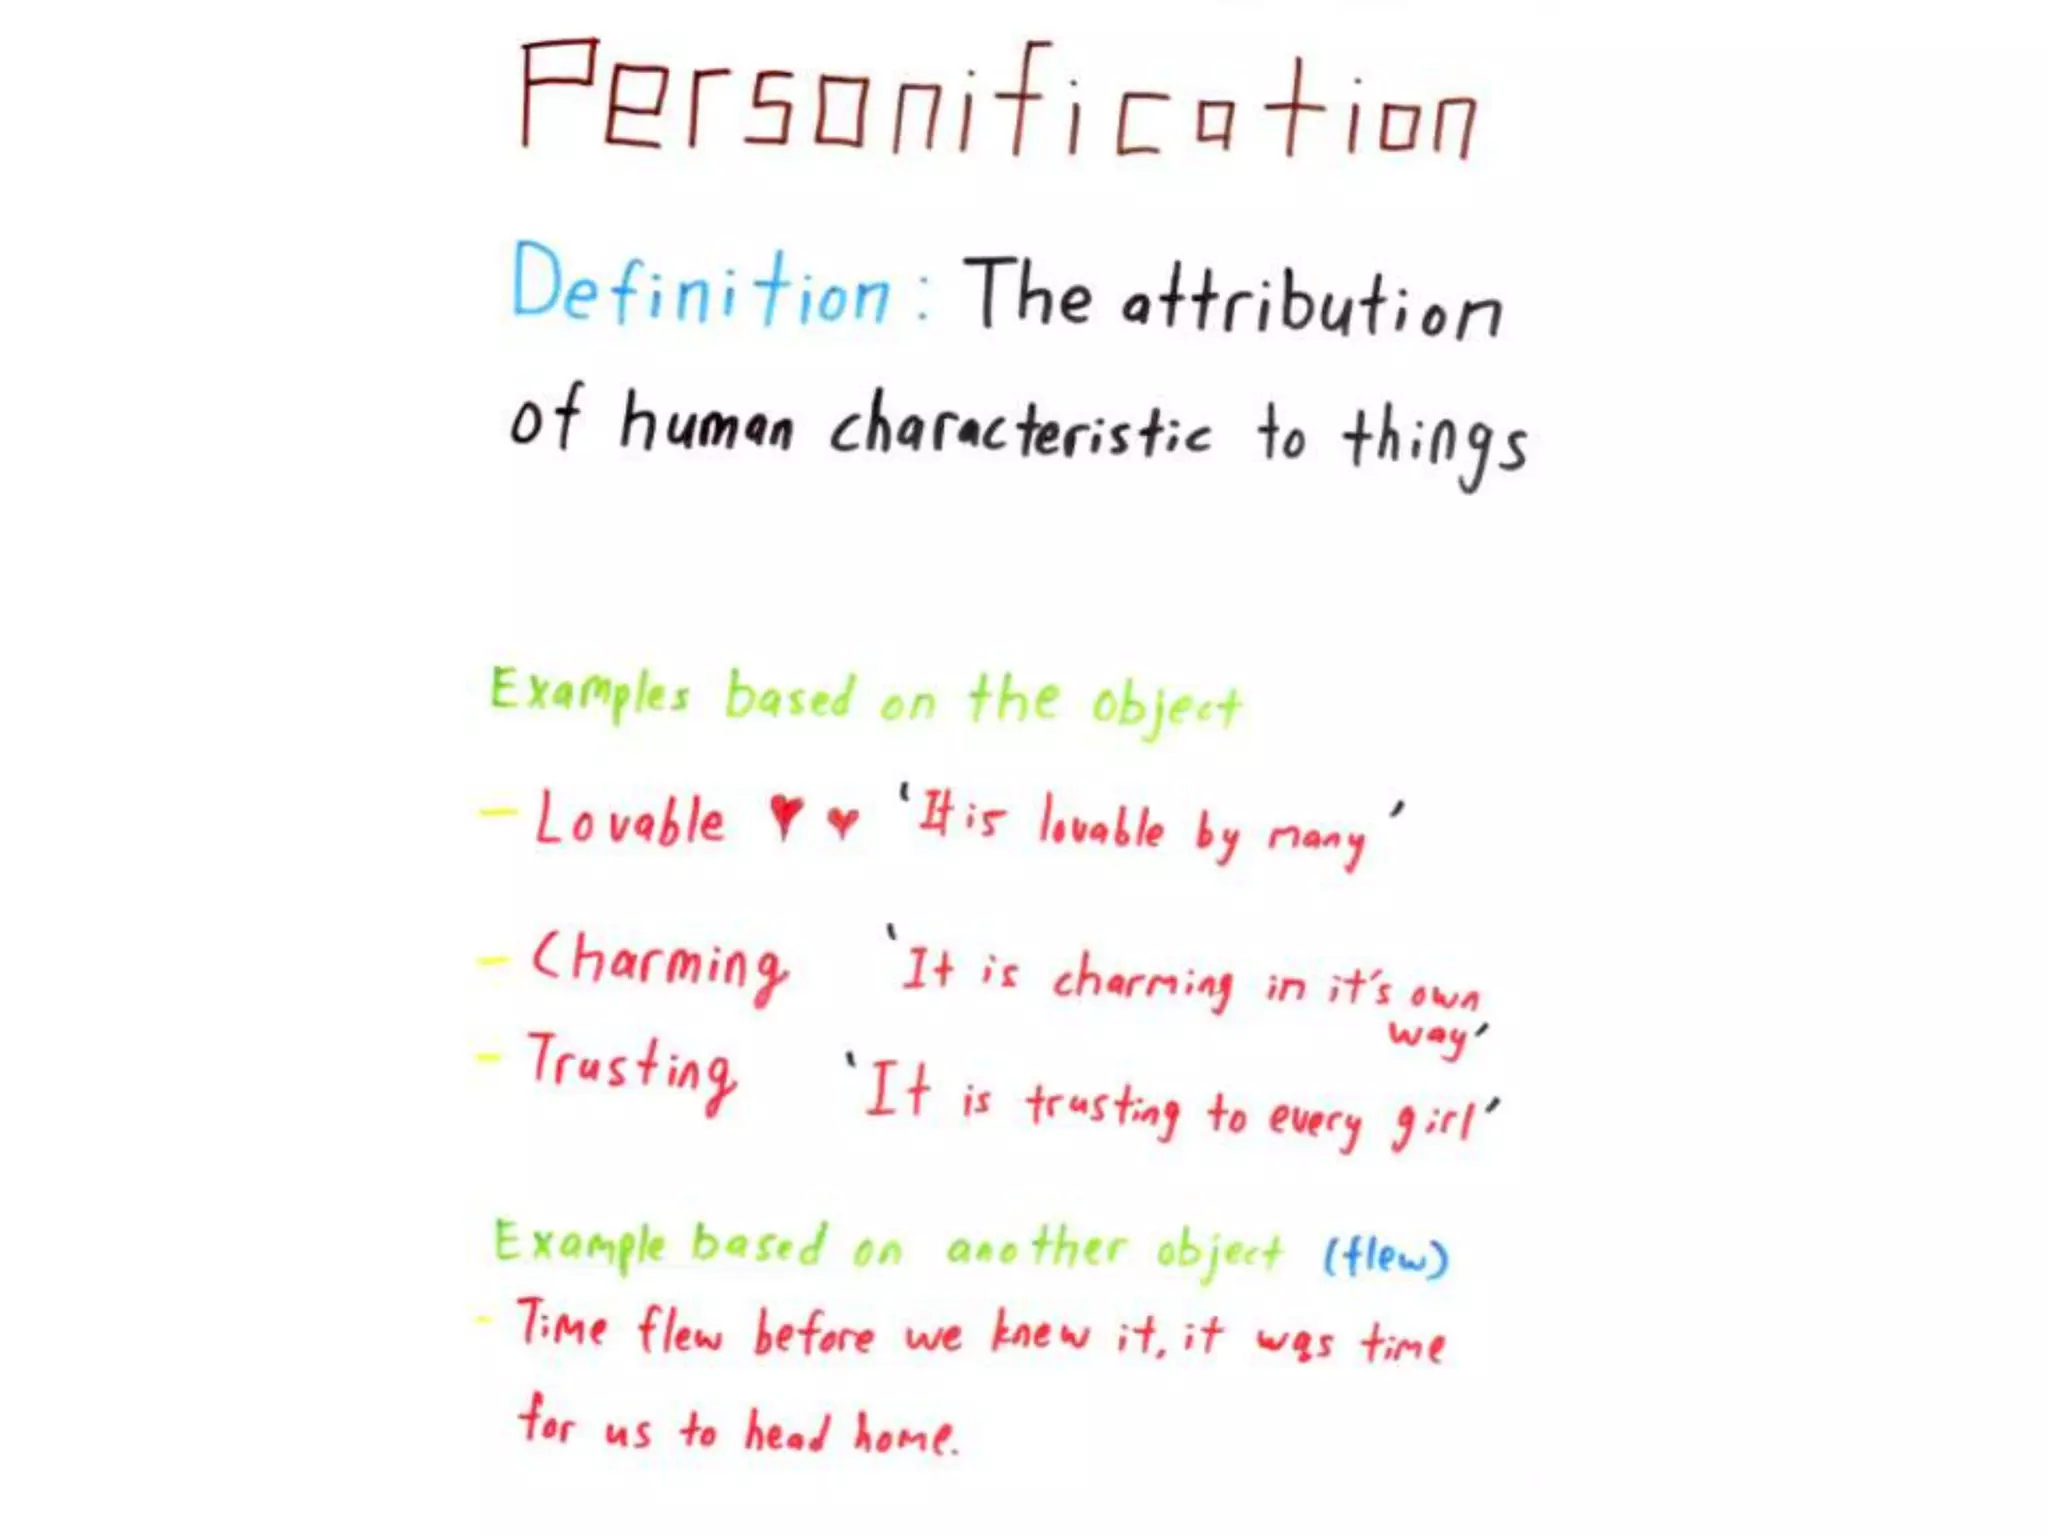 Personification
Definition: The attribution
of human characteristic to things
Examples based on the object
- Lovable ♥ ♥ 'It is lovable by many'
- Charming 'It is charming in it's own
way'
- Trusting 'It is trusting to every girl'
Example based on another object (flew)
- Time flew before we knew it, it was time
for us to head home.